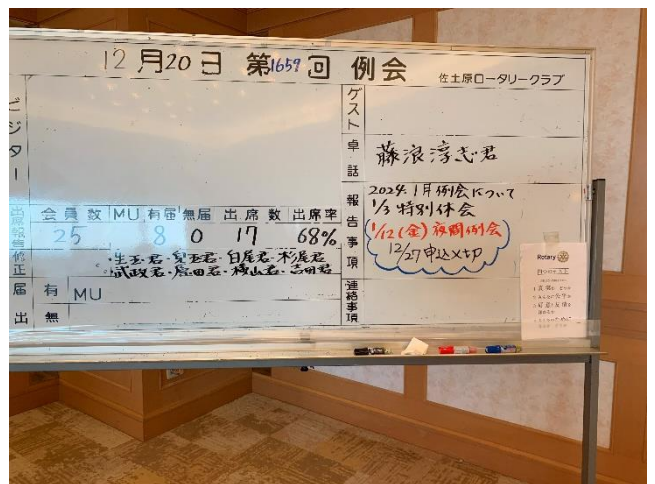 12月20日 第1659回 例会 佐土原ロータリークラブ
ビジター
ゲスト
卓話 藤浪淳志君
報告事項
2024.1月例会について
1/3 特別休会
1/12(金)夜間例会
12/27申込〆切
連絡事項
会員数 MU 有届 無届 出席数 出席率
25 8 0 17 68%
修正
・生玉君・ 白尾君・
・武政君・ 横山君・吉田君
届出 有 MU
無
Rotary